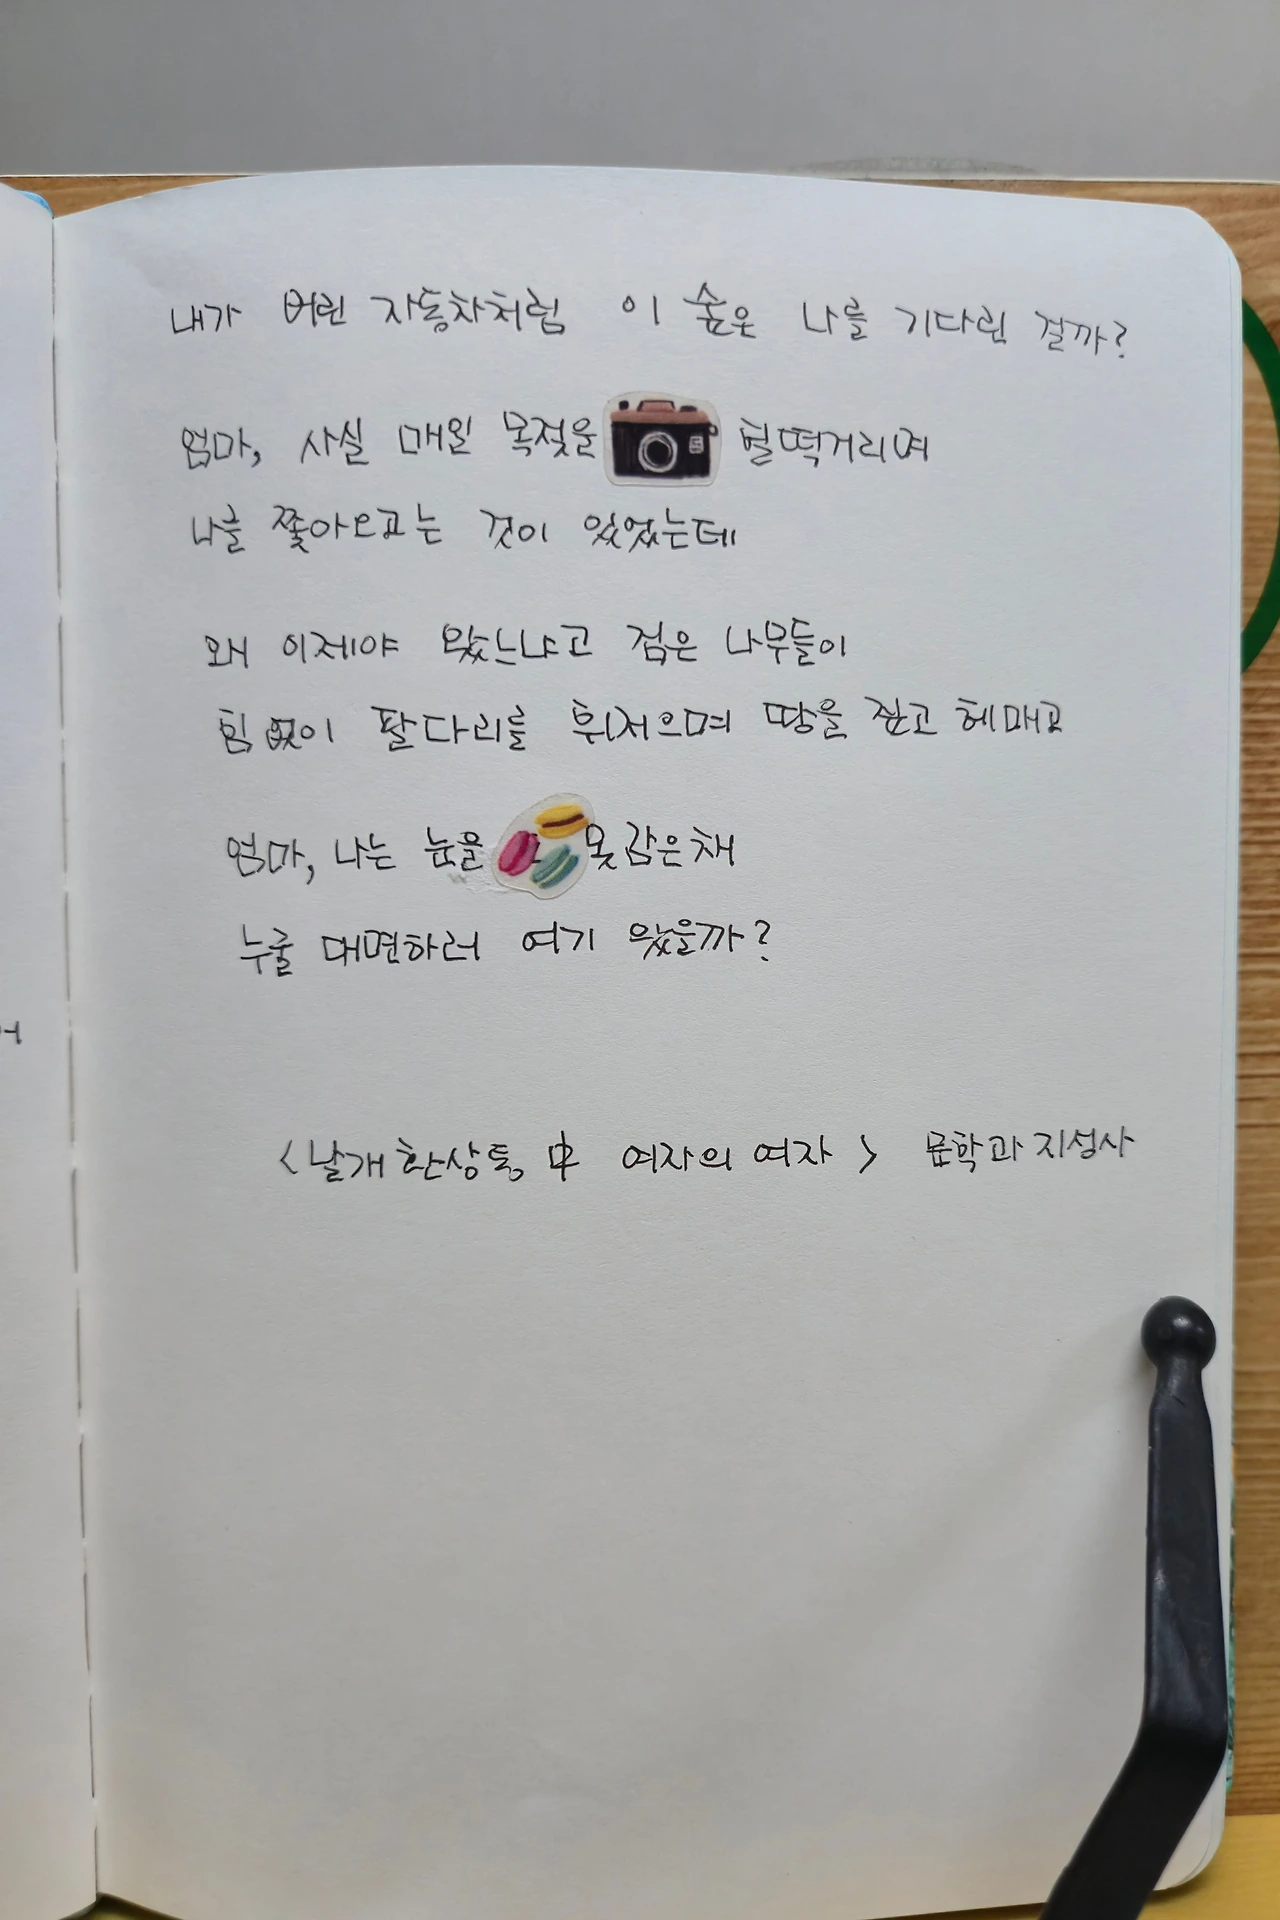 내가 버린 자동차처럼 이 숲은 나를 기다린 걸까?
엄마, 사실 매일 목젖을 덜떡거리며
나를 쫓아오고는 것이 있었는데
왜 이제야 왔느냐고 검은 나무들이
힘없이 팔다리를 휘저으며 땅을 짚고 헤매고
엄마, 나는 눈을 못 감은채
누굴 대면하러 여기 왔을까?
<날개 환상통 中 여자의 여자> 문학과 지성사